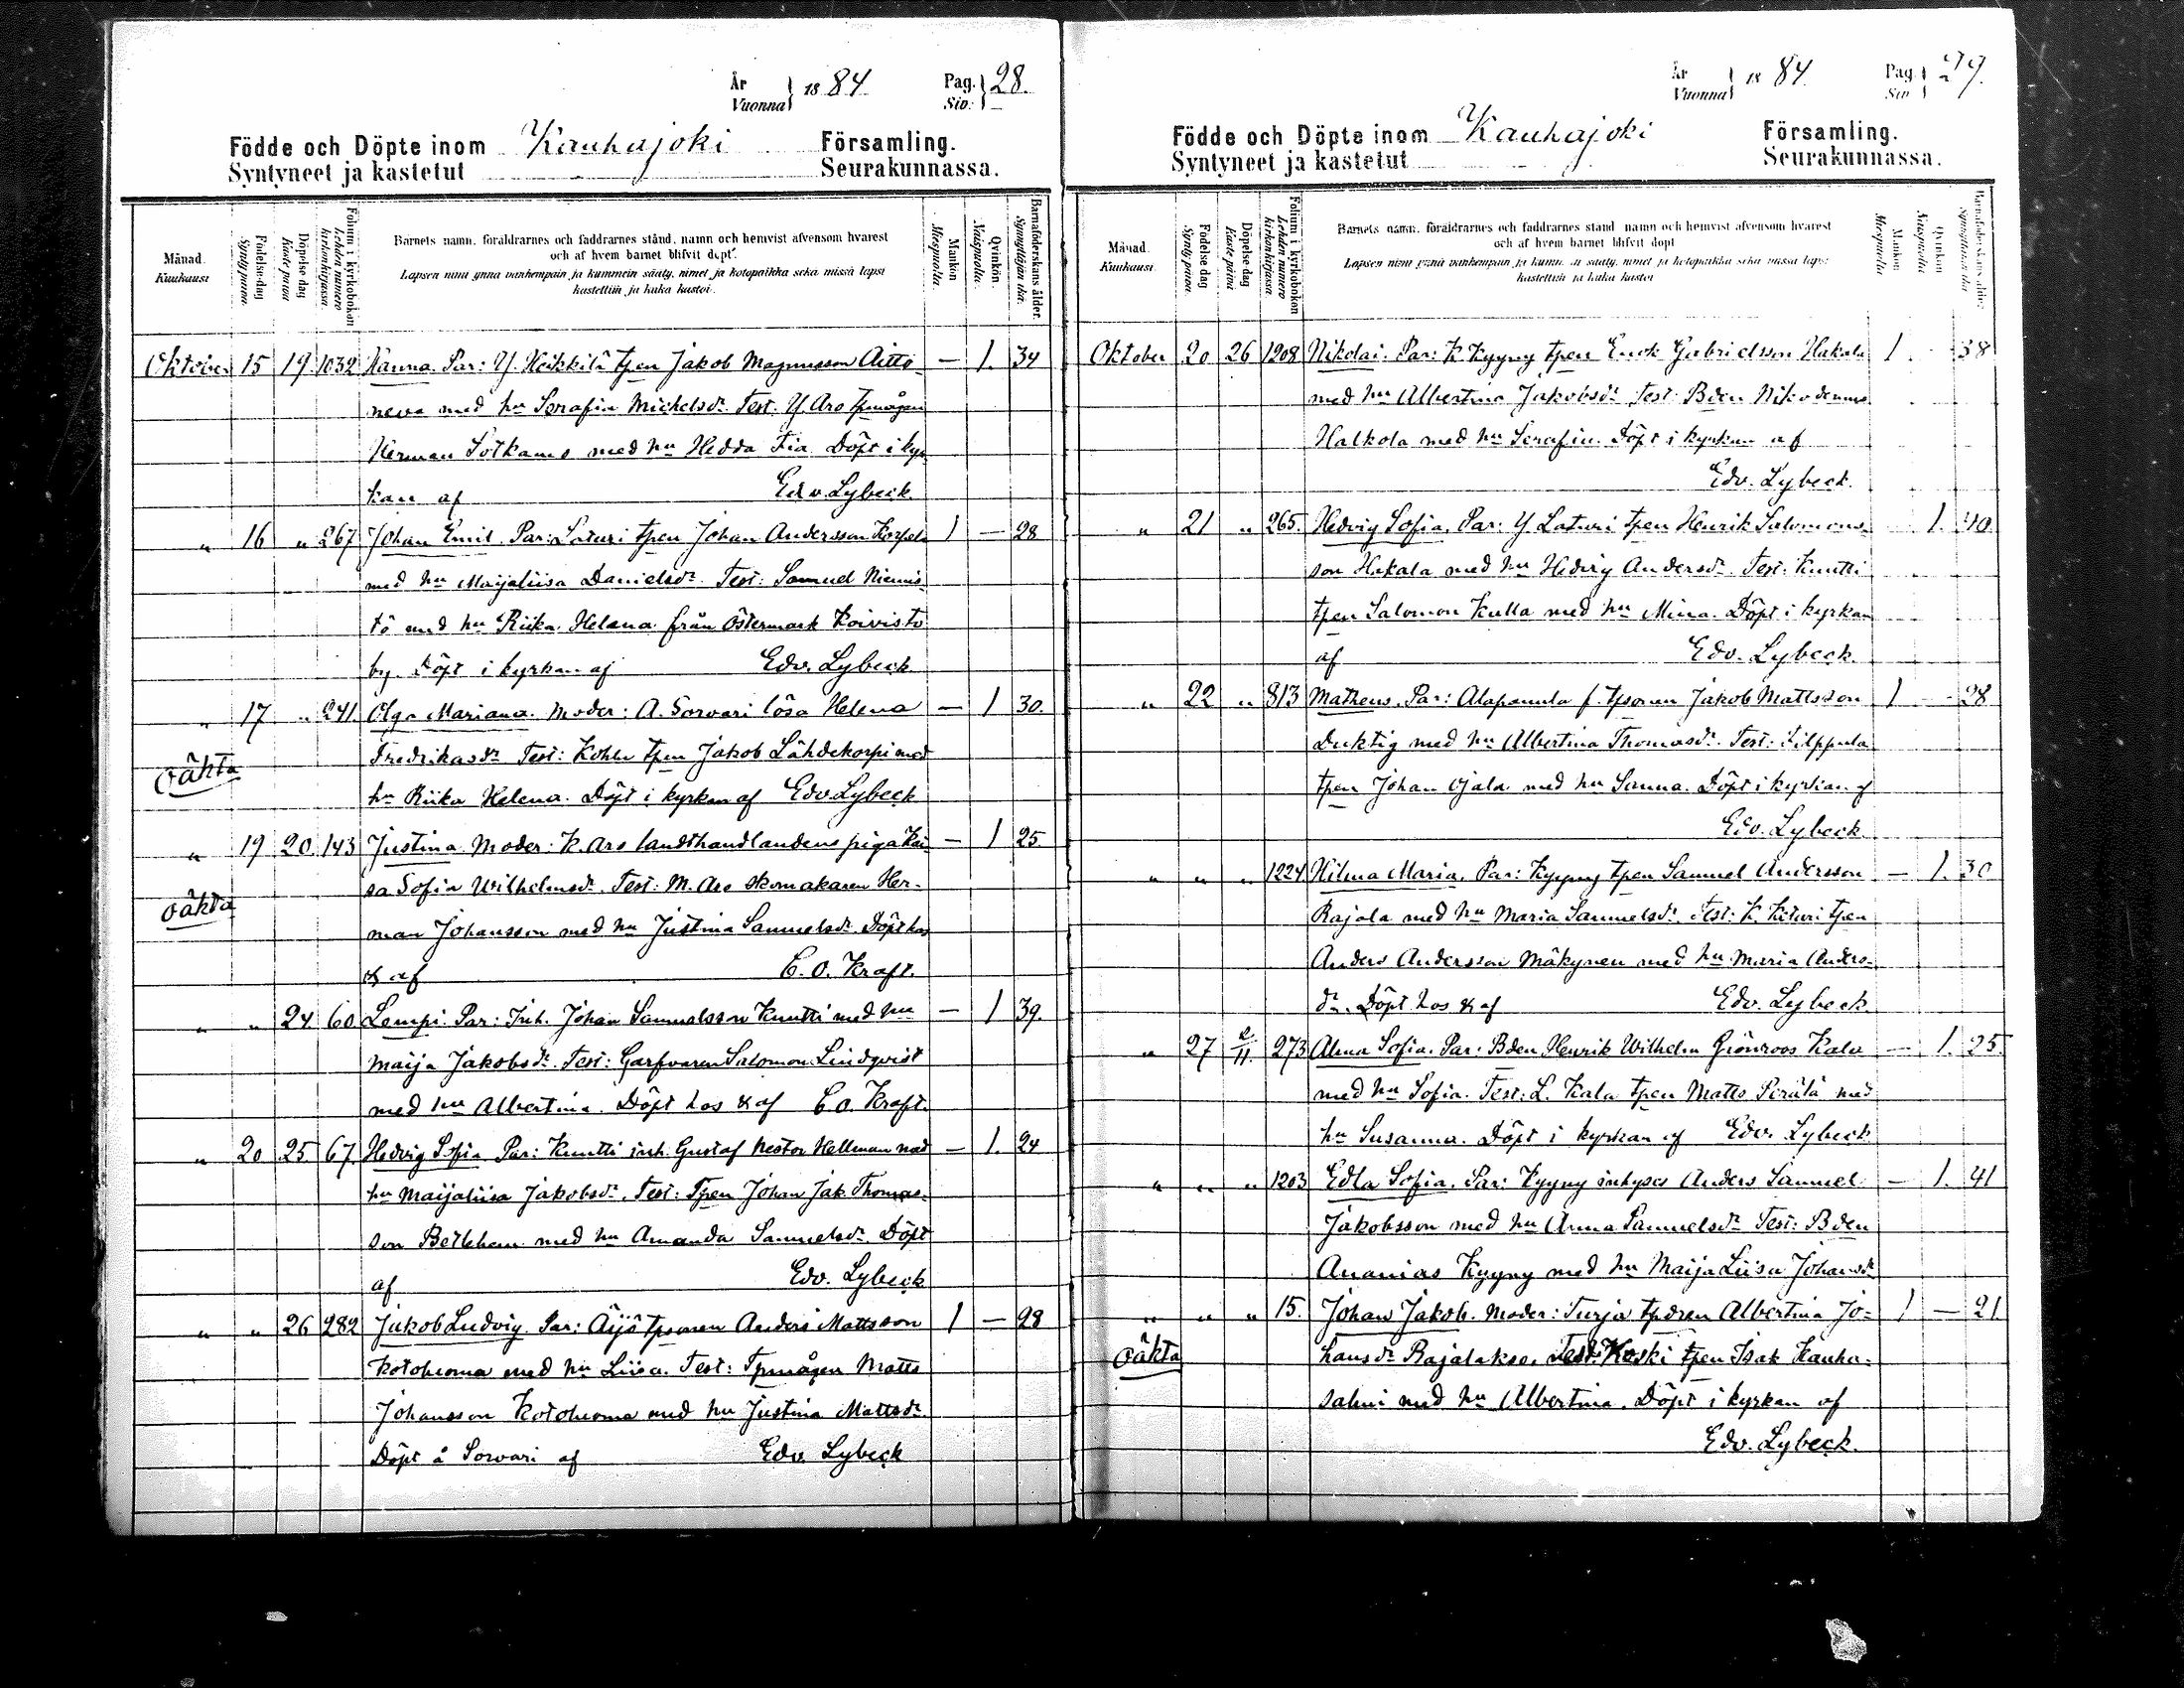 År
Vuonna } 1884 Pag. Siv: } 28.
Födde och Döpte inom Kauhajoki Församling.
Syntyneet ja kastetut Seurakunnassa.
Månad. Kuukausi Födelse-dag Synty päivä. Döpelse-dag Kaste päivä Folium i kyrkoboken Lehden numero kirkonkirjassa. Barnets namn, föräldrarnes och faddrarnes stånd, namn och hemvist äfvensom hvarest
och af hvem barnet blifvit döpt.
Lapsen nimi ynnä vanhempain ja kummein sääty, nimet ja kotopaikka sekä missä lapsi
kastettiin ja kuka kastoi. Mankön Miespuolia. Qvinkön. Naispuolia. Barnaföderskans ålder. Synnyttäjän ikä.
Oktober 15 19 1032 Hanna. Par: Y. Heikkilä tpen Jakob Magnusson Aitto- — 1. 34
neva med hu Serafia Michelsdr. Test: Y Aro tpmågen
Herman Sotkams med hu Hedda Fia Döpt i kyr
kan af Edv. Lybeck.
" 16 " 267 Johan Emil. Par: Laturi tpen Johan Andersson Korpela 1 — 28
med hu Maijaliisa Danielsdr. Test: Samuel Niemis
tö med hu Riika Helena från Östermark Koivisto
by. Döpt i kyrkan af Edv. Lybeck
" 17 " 241. Olga Mariana. Moder: A. Sorvari lösa Helena — 1 30.
oäkta Fredrikasdr Test: Kohlu tpen Jakob Lähdekorpi med
hu Riika Helena. Döpt i kyrkan af Edv. Lybeck
" 19 20. 143 Justina. Moder: K. Aro landthandlandens piga Kai- — 1 25
oäkta sa Sofia Wilhelmsdr. Test: M. Aro skomakaren Her-
man Johansson med hu Justina Samuelsdr. Döpt hos
& af C. O. Kraft.
" " 24 60 Lempi. Par: Inh. Johan Samuelsson Knutti med hu — 1 39.
Maija Jakobsdr. Test: Garfvaren Salomon Lindqvist
med hu Albertina. Döpt hos & af C. O. Kraft.
" 20 25 67. Hedvig Sofia Par: Knutti inh. Gustaf Nestor Hellman med — 1. 24
hu Maijaliisa Jakobsdr. Test: Tpen Johan Jak. Thomas-
son Betlehem med hu Amanda Samuelsdr. Döpt
af Edv. Lybeck
" " 26 282 Jakob Ludvig. Par: Äijö tpsonen Anders Mattsson 1 — 28
Kotoluoma med hu Liisa. Test: Tpmågen Matts
Johansson Kotoluoma med hu Justina Mattsdr.
Döpt å Sorvari af Edv. Lybeck
År
Vuonna } 1884. Pag. Siv } 29.
Födde och Döpte inom Kauhajoki Församling.
Syntyneet ja kastetut Seurakunnassa.
Månad. Kuukausi. Födelse dag Synty päivä. Döpelse dag Kaste päivä Folium i kyrkoboken Lehden numero kirkonkirjassa Barnets namn, föräldrarnes och faddrarnes stånd namn och hemvist äfvensom hvarest
och af hvem barnet blifvit döpt
Lapsen nimi ynnä vanhempain ja kummein sääty, nimet ja kotopaikka sekä missä lapsi
kastettiin ja kuka kastoi Mankön Miespuolia Qvinkön Naispuolia Barnaföderskans ålder. Synnyttäjän ikä
Oktober 20 26 1208 Nikolai. Par: K. Kyyny tpen Enok Gabrielsson Hakala 1 38
med hu Albertina Jakobsdr. Test: Bden Nikodemus
Halkola med hu Serafia. Döpt i kyrkan af
Edv. Lybeck.
" 21 " 265. Hedvig Sofia. Par: Y Laturi tpen Henrik Salomons- 1. 40.
son Hakala med hu Hedvig Andersdr. Test: Knutti
tpen Salomon Kulla med hu Mina. Döpt i kyrkan
af Edv. Lybeck.
" 22 " 813 Matheus. Par: Alapanula f. tpsonen Jakob Mattsson 1 — 28
Duktig med hu Albertina Thomasdr. Test: Filppula
tpen Johan Ojala med hu Sanna. Döpt i kyrkan af
Edv. Lybeck.
" " " 1224 Hilma Maria. Par: Kyyny tpen Samuel Andersson — 1. 30
Rajala med hu Maria Samuelsdr. Test: K. Keturi tpen
Anders Andersson Mäkynen med hu Maria Anders-
dr. Döpt hos & af Edv. Lybeck.
" 27 2/11. 273 Alma Sofia. Par: Bden Henrik Wilhelm Grönroos Kala — 1. 25.
med hu Sofia. Test: L. Kala tpen Matts Perälä med
hu Susanna. Döpt i kyrkan af Edv. Lybeck
" " " 1203 Edla Sofia. Par: Kyyny inhyses Anders Samuel — 1. 41
Jakobsson med hu Anna Samuelsdr. Test: Bden
Ananias Kyyny med hu Maija Liisa Johansdr
" " " 15. Johan Jakob. Moder: Turja tpdren Albertina Jo- 1 — 21
oäkta hansdr Rajalakso. Test: Koski tpen Isak Kauha-
salmi med hu Albertina. Döpt i kyrkan af
Edv. Lybeck.